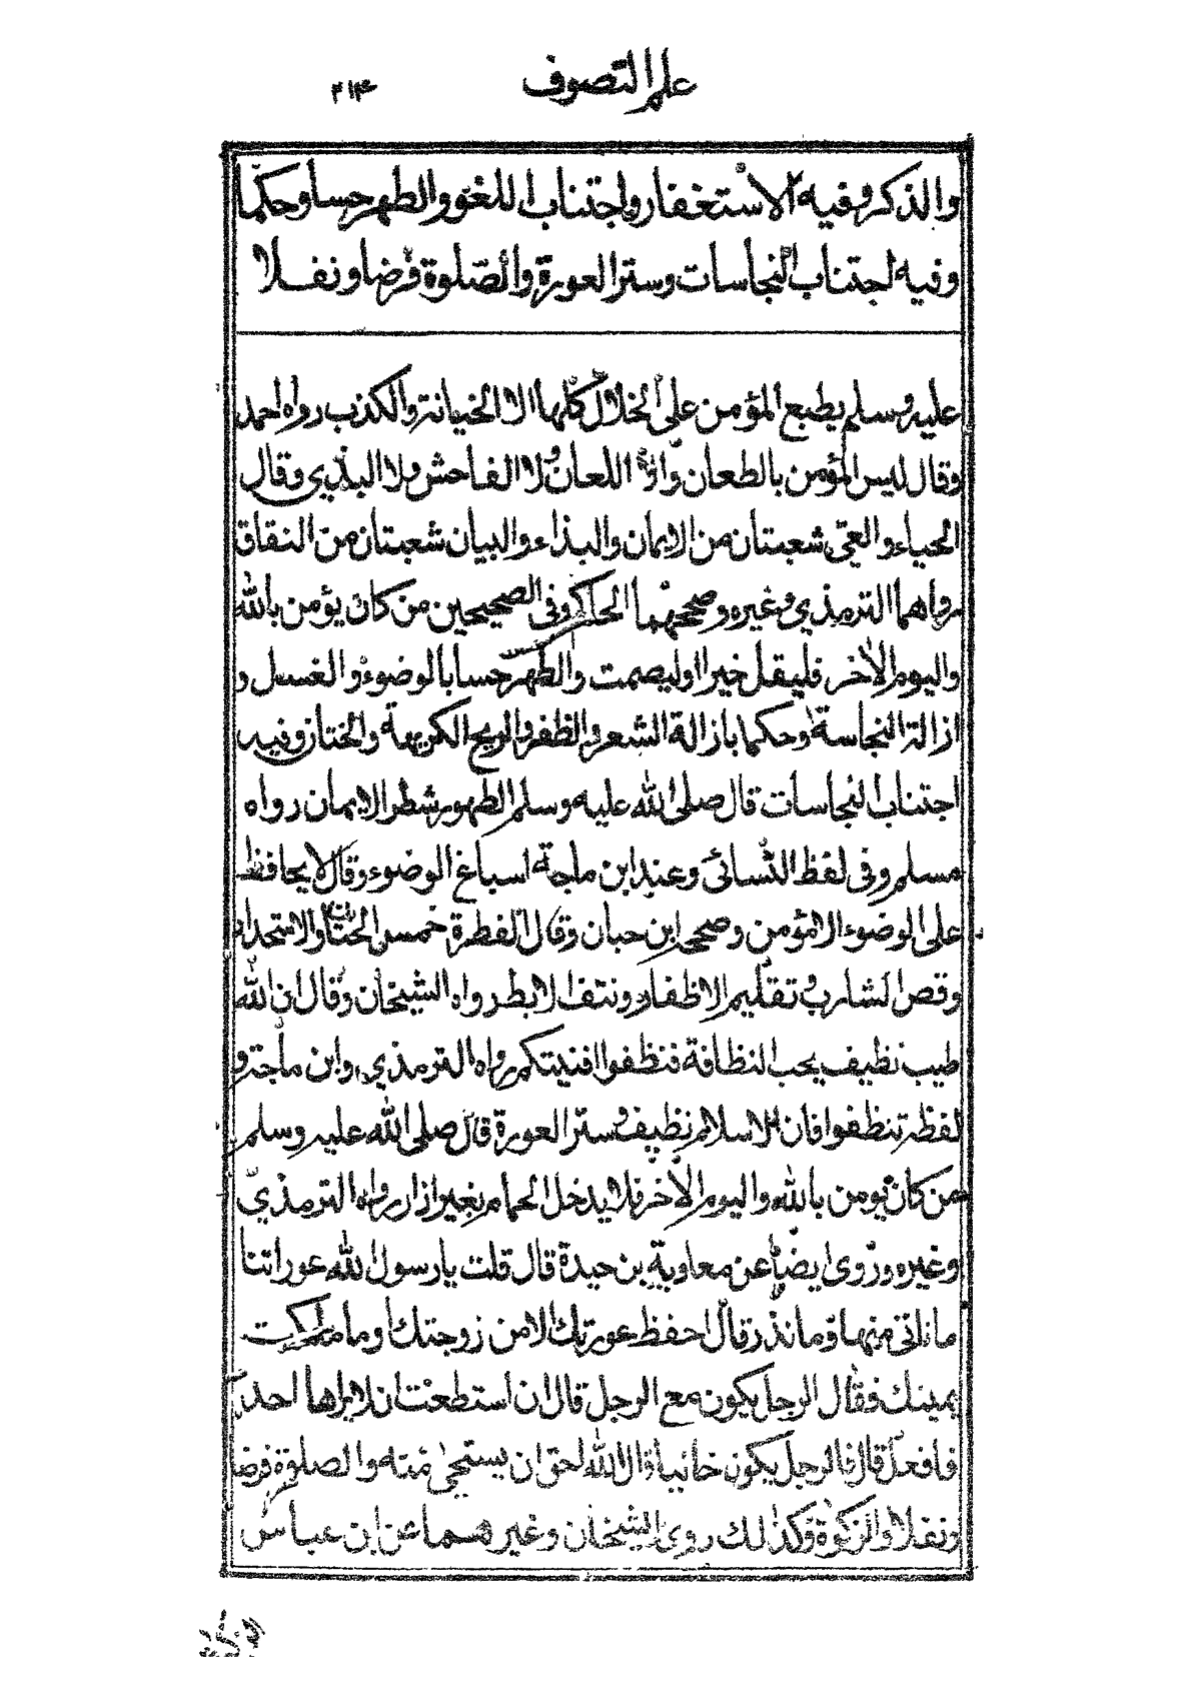 علم التصوف
٢١٣
والذكر وفيه الاستغفار واجتناب اللغو والطهر حسا وحكما
وفيه اجتناب النجاسات وستر العورة والصلوة فرضا ونفلا
عليه وسلم يطبع المؤمن على الخلال كلها الا الخيانة والكذب رواه احمد
وقال ليس المؤمن بالطعان ولا اللعان ولا الفاحش ولا البذي وقال
الحياء والعي شعبتان من الايمان والبذاء والبيان شعبتان من النفاق
رواهما الترمذي وغيره وصححهما الحاكم وفى الصحيحين من كان يؤمن بالله
واليوم الآخر فليقل خيرا اوليصمت والطهر حسا بالوضوء والغسل و
ازالة النجاسة وحكما بازالة الشعر والظفر والريح الكريهة والختان وفيه
اجتناب النجاسات قال صلى الله عليه وسلم الطهور شطر الايمان رواه
مسلم وفى لفظ النسائى وعند ابن ماجة اسباغ الوضوء وقال لا يحافظ
على الوضوء الا مؤمن وصححه ابن حبان وقال الفطرة خمس الختان والاستحداد
وقص الشارب وتقليم الاظفار ونتف الابط رواه الشيخان وقال ان الله
طيب نظيف يحب النظافة فنظفوا افنيتكم رواه الترمذي وابن ماجة و
لفظه تنظفوا فان الاسلام نظيف وستر العورة قال صلى الله عليه وسلم
من كان يومن بالله واليوم الآخر فلا يدخل الحمام بغير ازار رواه الترمذي
وغيره وروى ايضا عن معاوية بن حيدة قال قلت يا رسول الله عوراتنا
ما ناتى منها وما نذر قال احفظ عورتك الا من زوجتك وما ملكت
يمينك فقال الرجل يكون مع الرجل قال ان استطعت ان لا يراها احد
فافعل قال فالرجل يكون خاليا قال الله احق ان يستحيى منه والصلوة فرضا
ونفلا والزكوة كذلك روى الشيخان وغيرهما عن ابن عباس